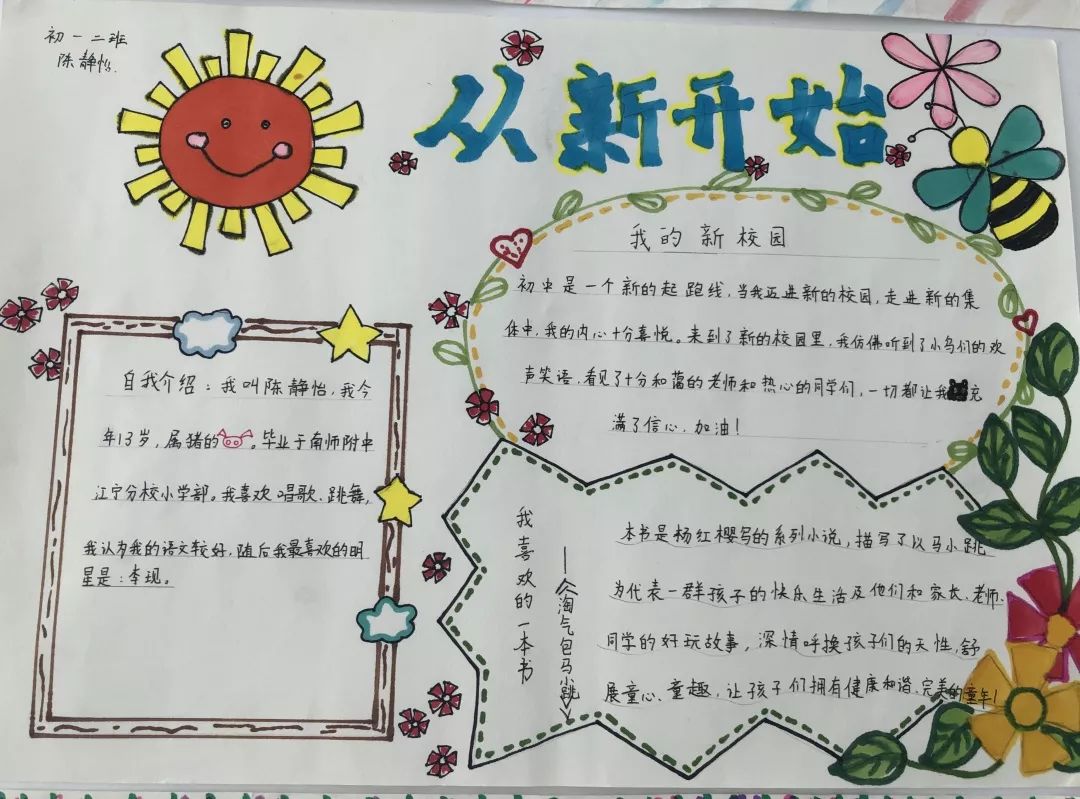 初一二班
陈静怡.
从新开始
我的新校园
初中是一个新的起跑线,当我迈进新的校园,走进新的集
体中,我的内心十分喜悦。来到了新的校园里,我仿佛听到了小鸟们的欢
声笑语,看见了十分和蔼的老师和热心的同学们,一切都让我充
满了信心,加油!
自我介绍:我叫陈静怡,我今
年13岁,属猪的。毕业于南师附中
江宁分校小学部。我喜欢唱歌、跳舞,
我认为我的语文较好,随后我最喜欢的明
星是:李现。
我喜欢的一本书
——《淘气包马小跳》
本书是杨红樱写的系列小说,描写了以马小跳
为代表一群孩子的快乐生活及他们和家长、老师、
同学的好玩故事,深情呼换孩子们的天性,舒
展童心、童趣,让孩子们拥有健康和谐、完美的童年!